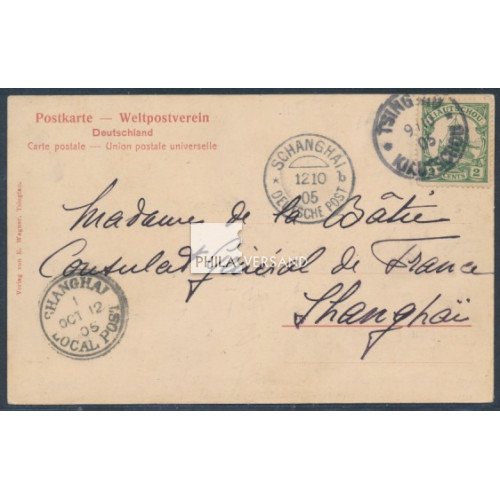 Postkarte — Weltpostverein
Deutschland
Carte postale — Union postale universelle
SCHANGHAI
b
12 10
05
* DEUTSCHE POST
TSINGTAU
9
05
* KIAUTSCHOU *
KIAUTSCHOU
2 CENTS 2
Madame de la Bâtie
Consulat Général de France
Shanghaï
PHILA VERSAND
SHANGHAI
1
OCT 12
05
LOCAL POST
Verlag von R. Wagner, Tsingtau.